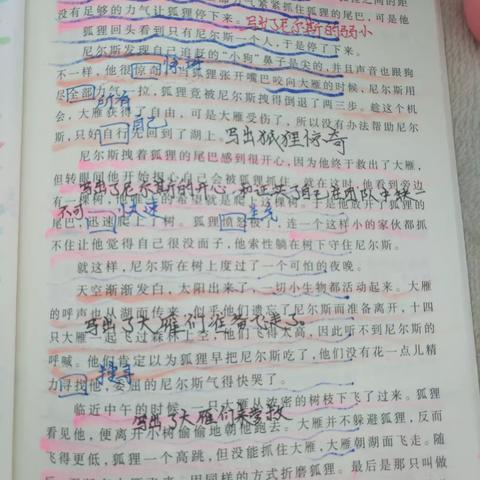 没有足够的力气让狐狸停下来。写出了尼尔斯的弱小
狐狸回头看到只有尼尔斯一个人，于是停了下来。
尼尔斯发现自己追赶的“小狗”鼻子是尖的，并且声音也跟狗
惊讶
不一样，他很惊奇。狐狸张开嘴巴咬向大雁的时候，尼尔斯用
尽全部力气一拉，狐狸竟被尼尔斯拽得倒退了两三步。趁这个机
所有
会，大雁获得了自由，可是大雁受伤了，所以没有办法帮助尼尔
自己
斯，只好自行飞回到了湖上。写出狐狸惊奇
尼尔斯拽着狐狸的尾巴感到很开心，因为他终于救出了大雁，
写出了尼尔斯的开心
不可
快速
生气
尾巴，迅速爬上了树。狐狸愤怒极了，连一个这样小的家伙都抓
不住让他觉得自己很没面子，他索性躺在树下守住尼尔斯。
就这样，尼尔斯在树上度过了一个可怕的夜晚。
天空渐渐发白，太阳出来了，一切小生物都活动起来。大雁
的呼声也从湖面传来，似乎他们遗忘了尼尔斯而准备离开，十四
写出了大雁们准备不来了。
只大雁一起飞过森林上空，他们飞得太高，因此听不到尼尔斯的
呼喊。他们肯定以为狐狸早把尼尔斯吃了，他们没有花一点儿精
搜寻
力寻找他，委屈的尼尔斯气得快哭了。
临近中午的时候，一只大雁从浓密的树枝下飞了过来。狐狸
写出了大雁们来营救
看见他，便离开小树偷偷地朝他跑去。大雁并不躲避狐狸，反而
飞得更低，狐狸一个高跳，但没能抓住大雁，大雁朝湖面飞走。随
同样的方式折磨狐狸。最后是那只叫做